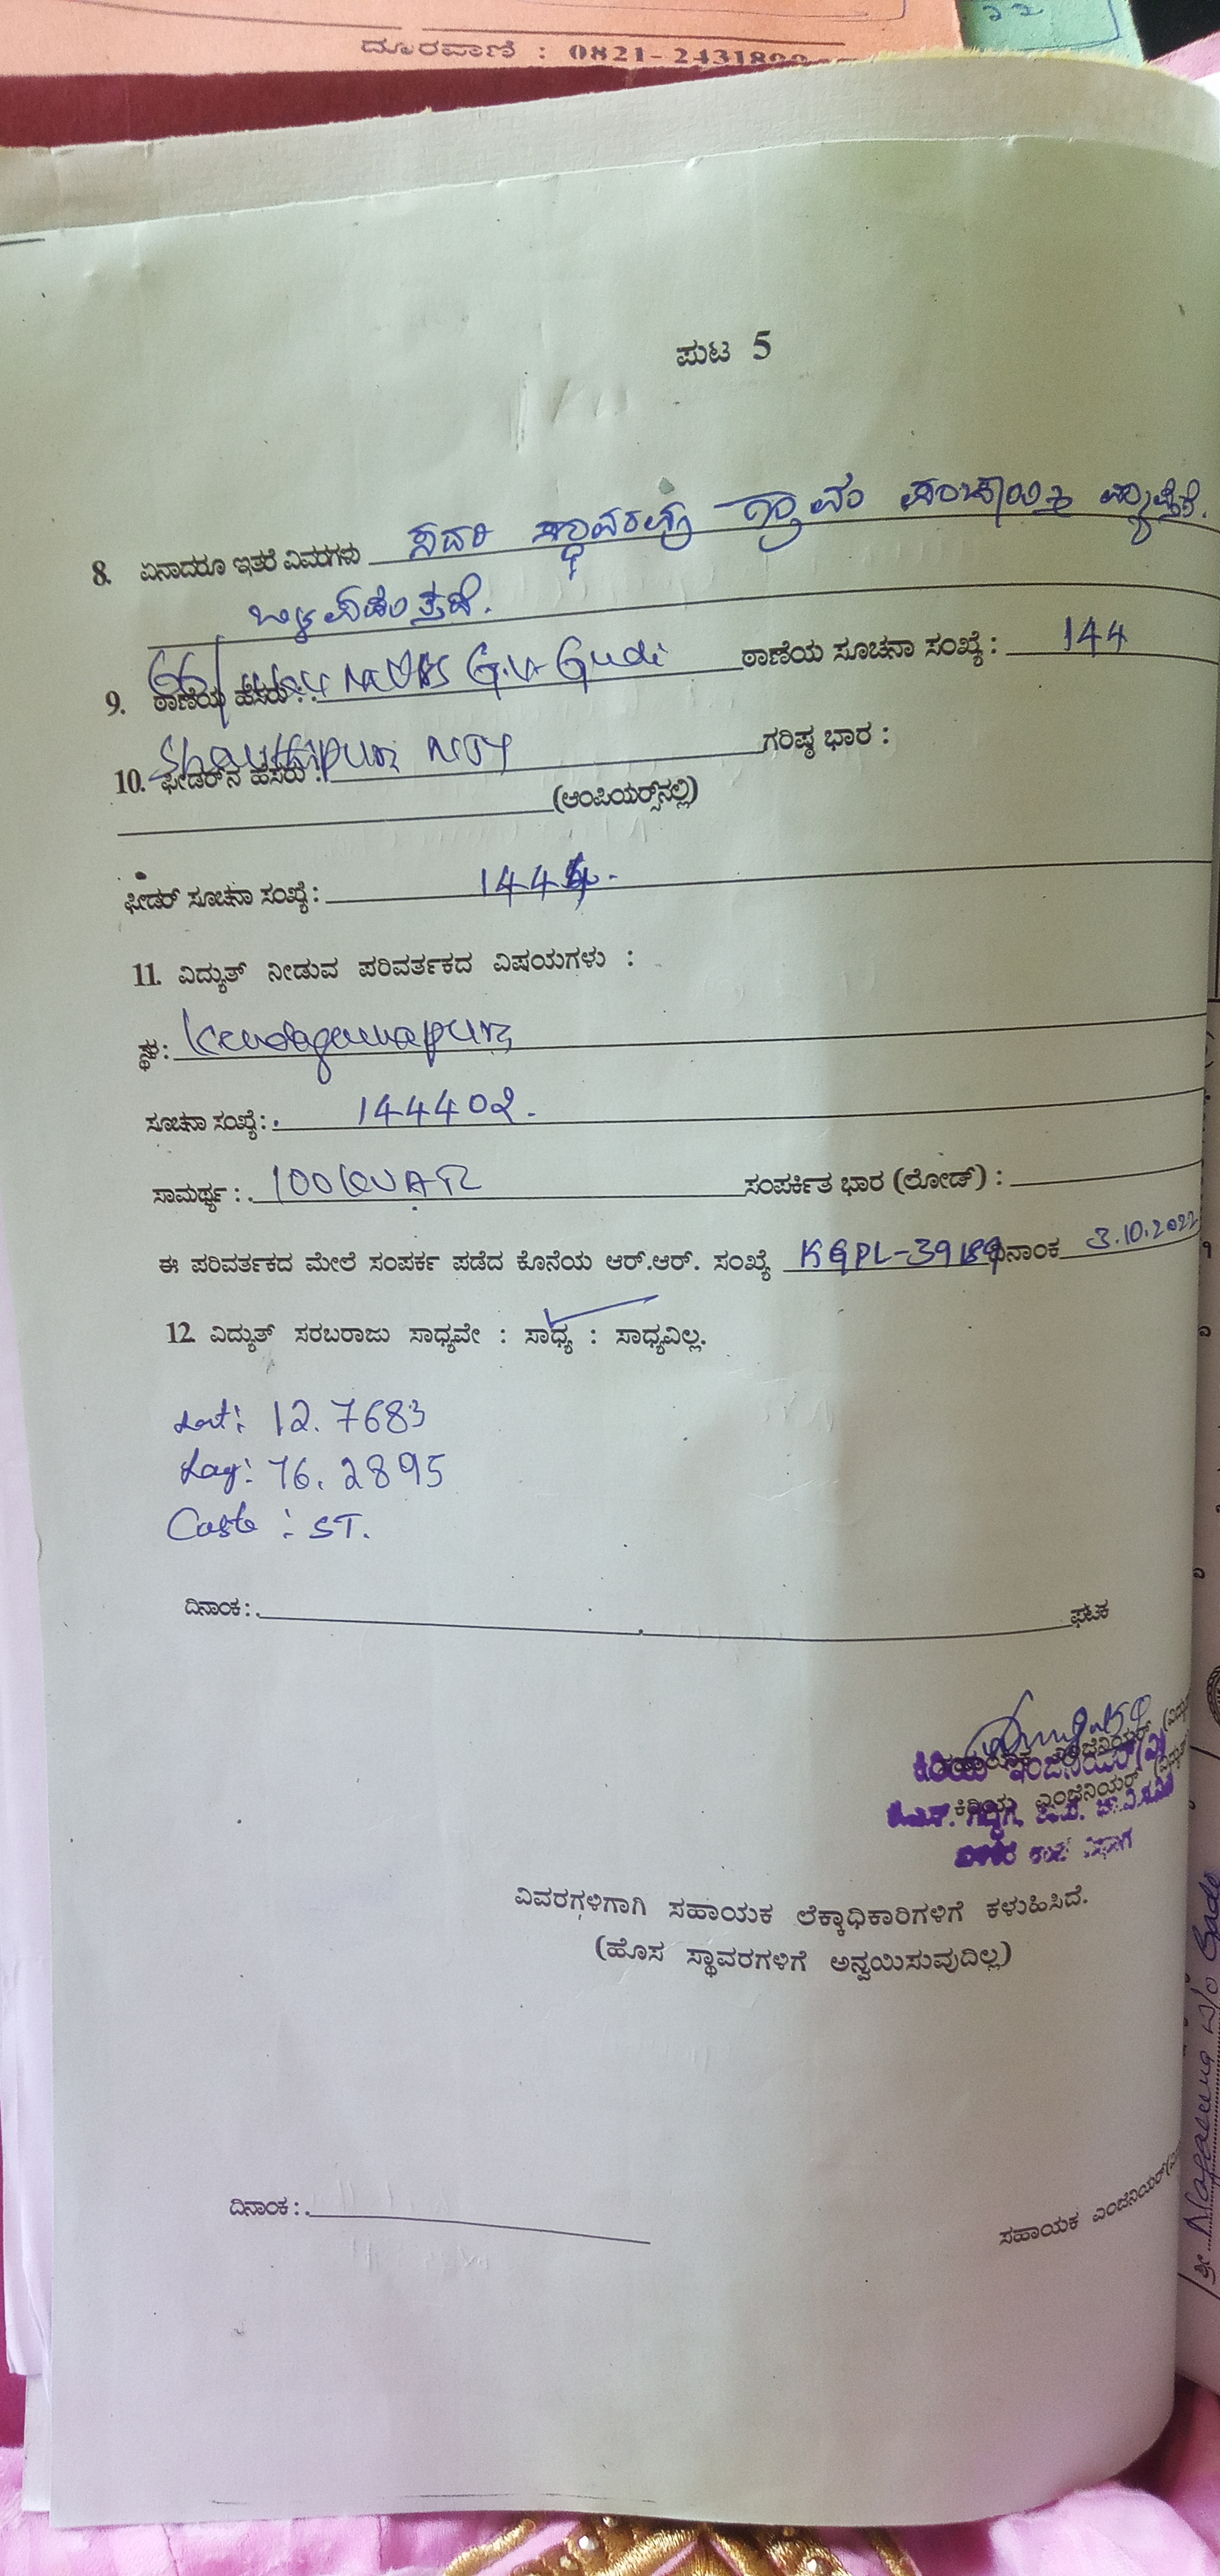 ದೂರವಾಣಿ : 0821-2431899
22
ಪುಟ 5
8. ಏನಾದರೂ ಇತರೆ ವಿವರಗಳು ಸದರಿ ಸ್ಥಾವರವು ಗ್ರಾಮ ಪಂಚಾಯ್ತಿ ವ್ಯಾಪ್ತಿಗೆ
ಒಳಪಡುತ್ತದೆ.
9. ಠಾಣೆಯ ಹೆಸರು : 66/ G.H Gudi ಠಾಣೆಯ ಸೂಚನಾ ಸಂಖ್ಯೆ : 144
10. ಫೀಡರ್‌ನ ಹೆಸರು : Shanthipura NJY ಗರಿಷ್ಠ ಭಾರ :
(ಆಂಪಿಯರ್‍ಸ್‌ನಲ್ಲಿ)
ಫೀಡರ್ ಸೂಚನಾ ಸಂಖ್ಯೆ : 1444.
11. ವಿದ್ಯುತ್ ನೀಡುವ ಪರಿವರ್ತಕದ ವಿಷಯಗಳು :
ಸ್ಥಳ : Kendagannapura
ಸೂಚನಾ ಸಂಖ್ಯೆ : 144402.
ಸಾಮರ್ಥ್ಯ : 100 ಸಂಪರ್ಕಿತ ಭಾರ (ಲೋಡ್) :
ಈ ಪರಿವರ್ತಕದ ಮೇಲೆ ಸಂಪರ್ಕ ಪಡೆದ ಕೊನೆಯ ಆರ್.ಆರ್. ಸಂಖ್ಯೆ KGPL-39189 ದಿನಾಂಕ 3.10.2022
12. ವಿದ್ಯುತ್ ಸರಬರಾಜು ಸಾಧ್ಯವೇ : ಸಾಧ್ಯ : ಸಾಧ್ಯವಿಲ್ಲ.
Lat: 12.7683
Log: 76.2895
Caste : ST.
ದಿನಾಂಕ : ಘಟಕ
ಸಹಾಯಕ ಎಂಜಿನಿಯರ್
ಕಿರಿಯ ಇಂಜಿನಿಯರ್(ವಿ)
ಕಿರಿಯ ಎಂಜಿನಿಯರ್
ವಿವರಗಳಿಗಾಗಿ ಸಹಾಯಕ ಲೆಕ್ಕಾಧಿಕಾರಿಗಳಿಗೆ ಕಳುಹಿಸಿದೆ.
(ಹೊಸ ಸ್ಥಾವರಗಳಿಗೆ ಅನ್ವಯಿಸುವುದಿಲ್ಲ)
ದಿನಾಂಕ :
ಸಹಾಯಕ ಎಂಜಿನಿಯರ್